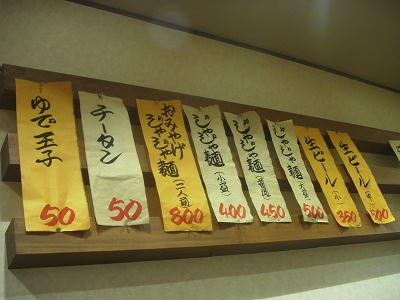 ゆで玉子
50
チータン
50
おみやげ
じゃじゃ麺
(二人前)
800
じゃじゃ麺
(小盛)
400
じゃじゃ麺
(普通)
450
じゃじゃ麺
(大盛)
500
生ビール
(小)
350
生ビール
(中)
500